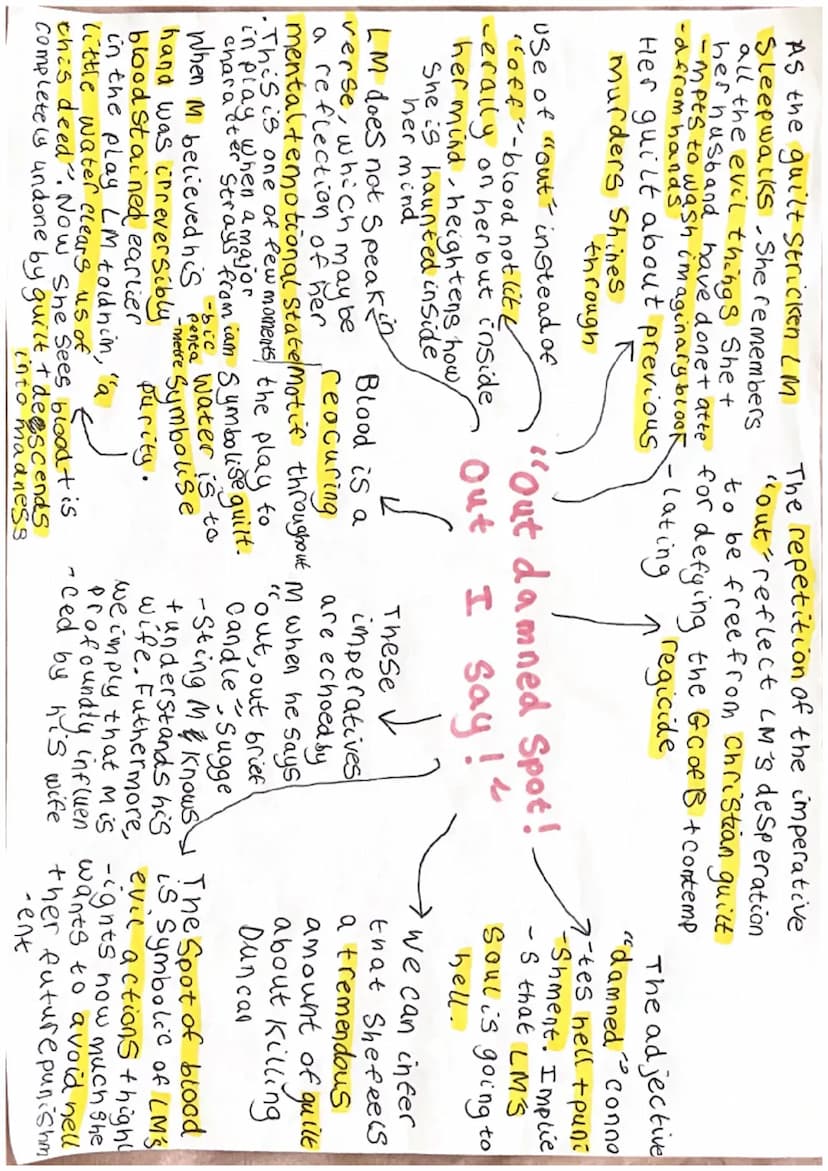 As the guilt stricken LM
Sleepwalks. She remembers
all the evil things she +
her husband have done + atte
-mpts to wash imaginary bloo
-d from hands
Her guilt about previous
murders shines
through
The repetition of the imperative
"out" reflect LM's desperation
to be free from Christian guilt
for defying the GC of B + contemp
-lating
regicide
The adjective
"damned" conno
-tes hell + puni
-shment. Implie
-s that LM's
soul is going to
hell.
use of "out" instead of
"off" - blood not lit
-erally on her but inside
her mind, heightens how
She is haunted inside
her mind
"Out damned spot!
Out I say!"
LM does not speak in
verse, which may be
a reflection of her
mental + emotional state
. This is one of few moments
in play when a major
character strays from iam
-bic
penta
-metre
Blood is a
reocuring
motif throughout
the play to
symbolise guilt.
Water is to
symbolise
purity.
When M believed his
hand was irreversibly
bloodstained earlier
in the play LM told him, "a
little water clears us of
this deed". Now she sees blood + is
completely undone by guilt + descends
into madness
These
imperatives
are echoed by
M when he says
"out, out brief
candle", sugge
-sting M knows
+ understands his
wife. Futhermore,
we imply that M is
profoundly influen
-ced by his wife
We can infer
that She feels
a tremendous
amount of guilt
about killing
Duncan
The spot of blood
is symbolic of LM's
evil actions + highl
-ights how much she
wants to avoid hell
+ her future punishm
-ent